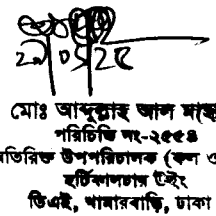 ২০.০২.২৫
মোঃ আব্দুল্লাহ আল মা
পরিচিতি নং-২৫৫৪
অতিরিক্ত উপপরিচালক (কল ও
হর্টিকালচার উইং
ডিএই, খামারবাড়ি, ঢাকা